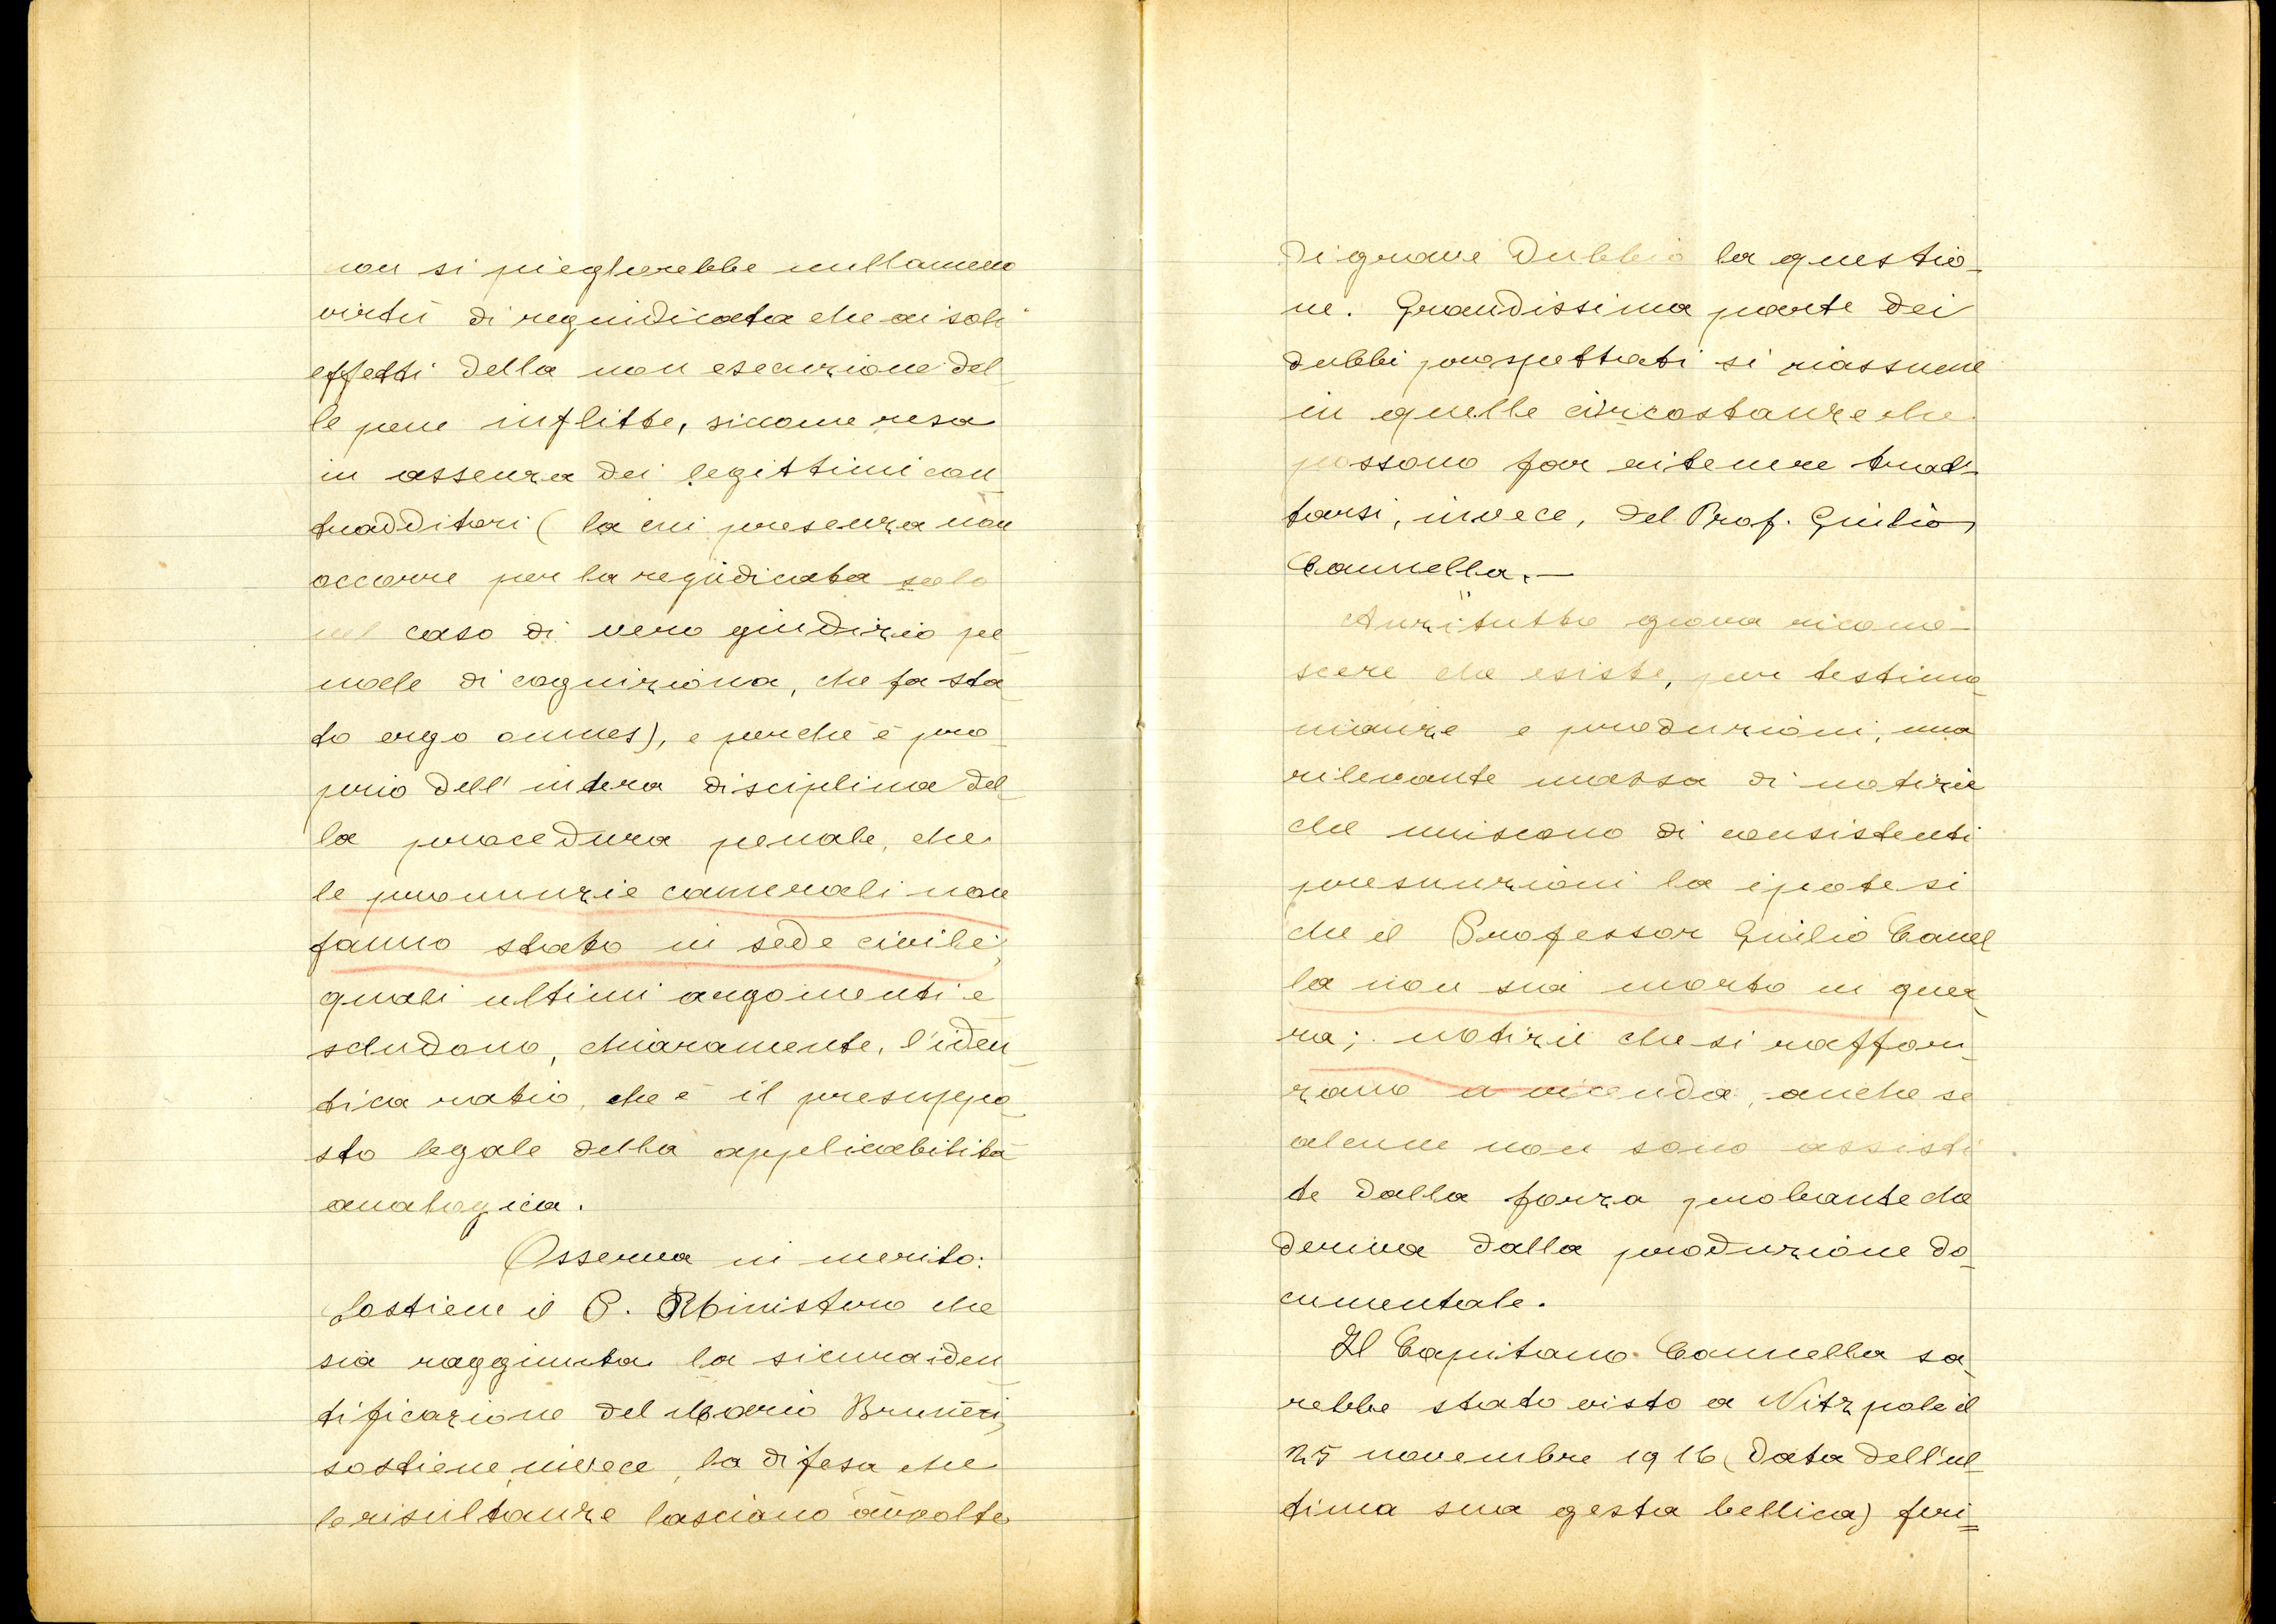 non si piegherebbe nullameno
virtù di reguidicata che ai soli
effetti della non esecuzione del_
le pene inflitte, siccome resa
in assenza dei legittimi con_
tradditori (la cui presenza non
occorre per la regiudicata solo
nel caso di vero giudizio pe_
nale di cognizione, che fa sta_
to ergo omnes), e perché è pro_
prio dell'intera disciplina del_
la procedura penale, che
le pronunzie camerali non
fanno stato in sede civile;
quali ultimi argomenti e_
scludono, chiaramente, l'iden_
tica ratio, che è il presuppo_
sto legale della applicabilità
analogica.
Osserva in merito:
Sostiene il P. Ministero che
sia raggiunta la sicura iden_
tificazione del Mario Bruneri,
sostiene, invece, la difesa che
le risultanze lasciano avvolte
di grave dubbio la questio_
ne. Grandissima parte dei
dubbi prospettati si riassume
in quelle circostanze che
possono far ritenere trat_
tarsi, invece, del Prof. Giulio
Cannella.—
Anzitutto giova ricono_
scere che esiste, per testimo_
nianze e produzioni, una
rilevante massa di notizie
che muniscono di consistenti
presunzioni la ipotesi
che il Professor Giulio Canel_
la non sia morto in guer_
ra; notizie che si raffor_
zano a vicenda, anche se
alcune non sono assisti_
te dalla forza probante che
deriva dalla produzione do_
cumentale.
Il Capitano Cannella sa_
rebbe stato visto a Nitzpole il
25 novembre 1916 (data dell'ul_
tima sua gesta bellica) feri=